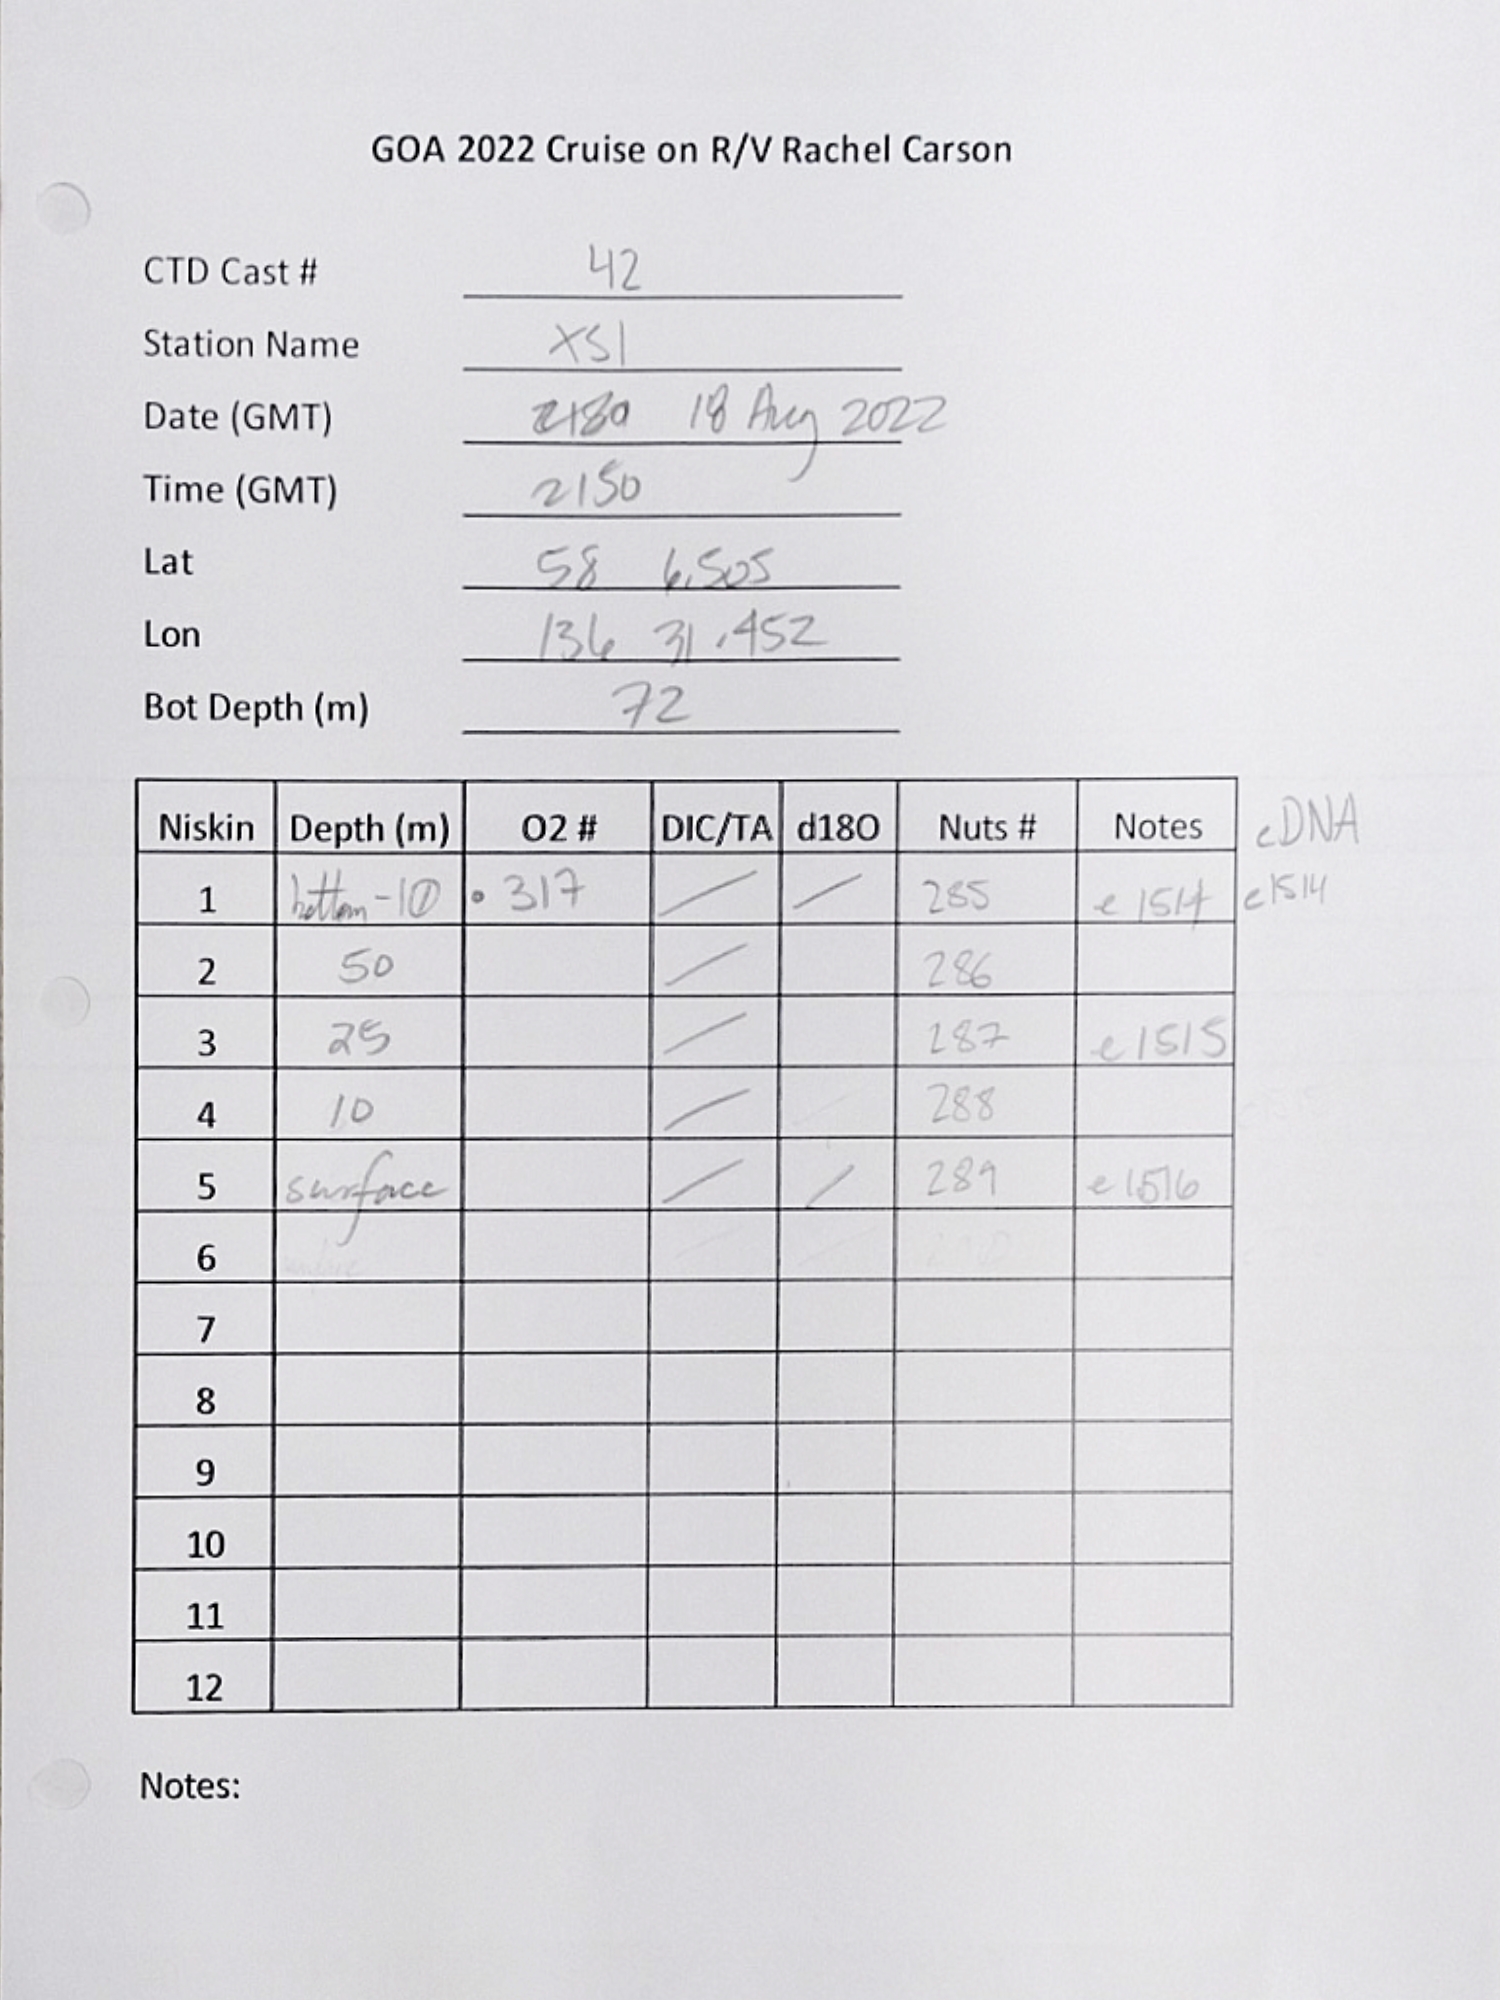 GOA 2022 Cruise on R/V Rachel Carson
CTD Cast # 42
Station Name XS1
Date (GMT) 18 Aug 2022
Time (GMT) 2150
Lat 58 6.505
Lon 136 31.452
Bot Depth (m) 72
Niskin Depth (m) O2 # DIC/TA d18O Nuts # Notes eDNA
1 bottom-10 317 / / 285 e1514 e1514
2 50 / 286
3 25 / 287 e1515
4 10 / 288
5 surface / / 289 e1516
6
7
8
9
10
11
12
Notes: